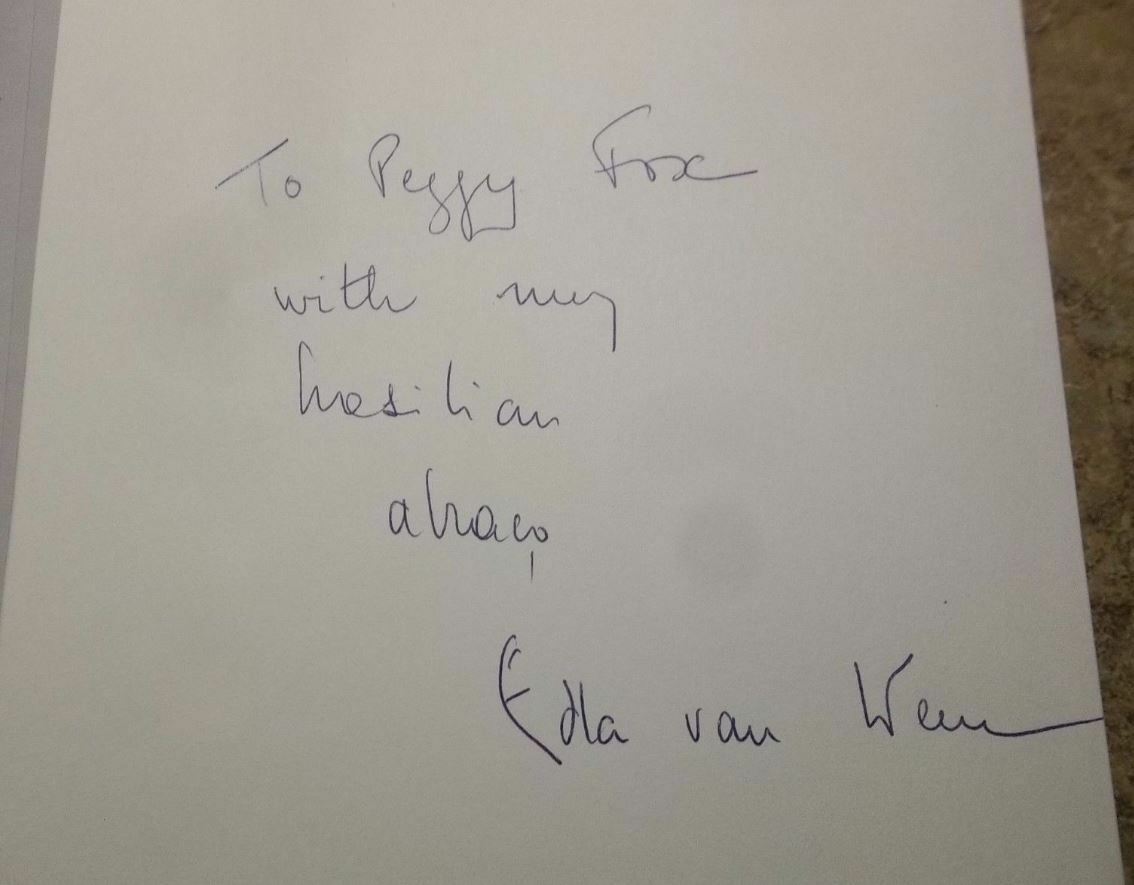 To Peggy Fox
with my
brasilian
abraço
Edla van Steen